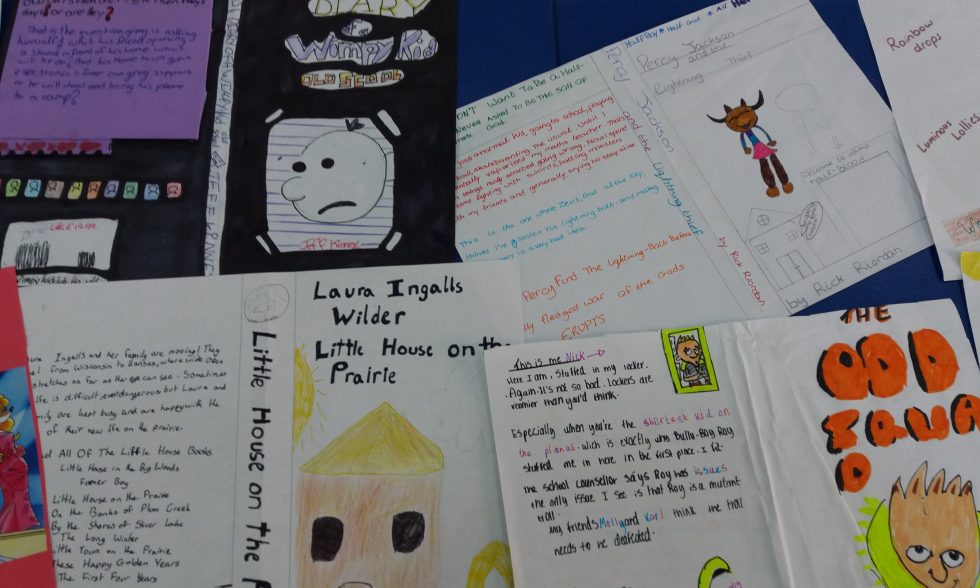 days? or are they?
That is the question greg is asking
himself
DIARY
of a
Wimpy Kid
OLD SCHOOL
JEFF Kinney
DON'T Want To Be a Half-
NEVER Asked To BE THE SON OF
God
just a normal kid, going to school, playing
skateboarding the usual. Until I
vaporized my maths teacher. That's
things really started going wrong. Now I spend
time fighting with swords, battling monsters
with my friends and generally trying to stay alive
This is the one where Zeus, God of the Sky,
thinks I've stolen his lightning bolt - and making
is a very bad idea
Percy find The Lightning-Bolt Before
Fledged War of the Gods
ERUPTS
Percy Jackson and the Lightning thief
by Rick Riordan
Half Boy * Half God * All
Percy Jackson
and the
Lightning Thief
Welcome to camp
Half-Blood
by Rick Riordan
Rainbow
drops
Luminous
Lollies
Ingalls and her family are moving! They
from Wisconsin to Kansas, where wide open
stretches as far as the eye can see. Sometimes
life is difficult, even dangerous but Laura and
family are kept busy and are happy with the
of their new life on the prairie.
All Of The Little House Books
Little House in the Big Woods
Farmer Boy
Little House on the Prairie
On the Banks of Plum Creek
By the Shores of Silver Lake
The Long Winter
Little Town on the Prairie
These Happy Golden Years
The First Four Years
Little House on the P
Laura Ingalls
Wilder
Little House on the
Prairie
This is me Nick
Here I am. Stuffed in my locker.
Again. It's not so bad. Lockers are
roomier than you'd think.
Especially when you're the shortest kid on
the planet. Wich is exactly why Bully-Boy Roy
stuffed me in here in the first place. I
the School Counsellor says Roy has issues
the only issue I see is that Roy is a mutant
troll.
My friends Molly and Karl think the troll
needs to be defeated.
THE
ODD
SQUAD